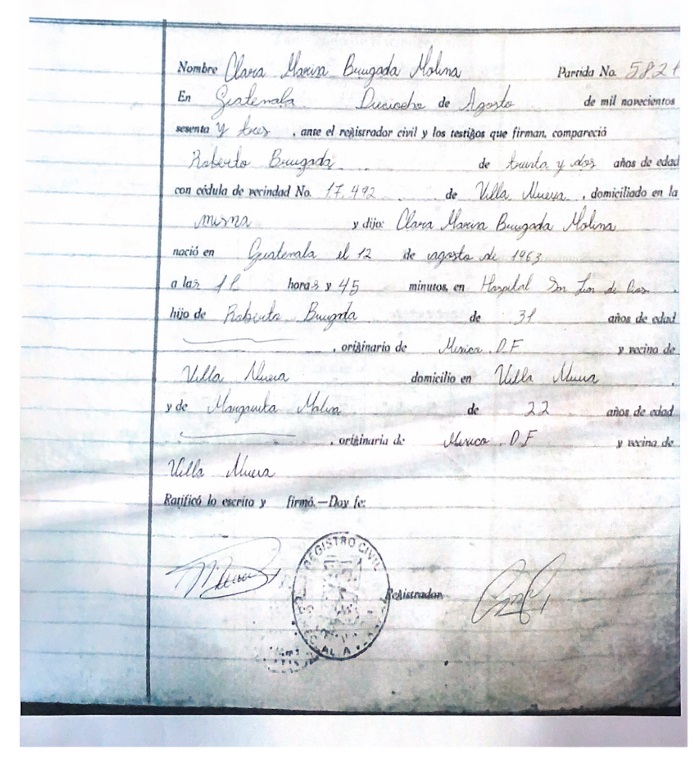 Nombre Clara Marina Brugada Molina Partida No. 5821
En Guatemala Dieciocho de Agosto de mil novecientos
sesenta y tres , ante el registrador civil y los testigos que firman, compareció
Roberto Brugada de treinta y dos años de edad
con cédula de vecindad No. 17,492 de Villa Nueva , domiciliado en la
misma y dijo: Clara Marina Brugada Molina
nació en Guatemala el 12 de agosto de 1963
a las horas y 45 minutos, en Hospital San Juan de Dios
hijo de Roberto Brugada de 31 años de edad
, originario de Mexico D.F y vecino de
Villa Nueva domicilio en Villa Nueva
y de Margarita Molina de 22 años de edad
, originaria de Mexico D.F y vecina de
Villa Nueva
Ratificó lo escrito y firmó.—Doy fe:
REGISTRO CIVIL
Registrador